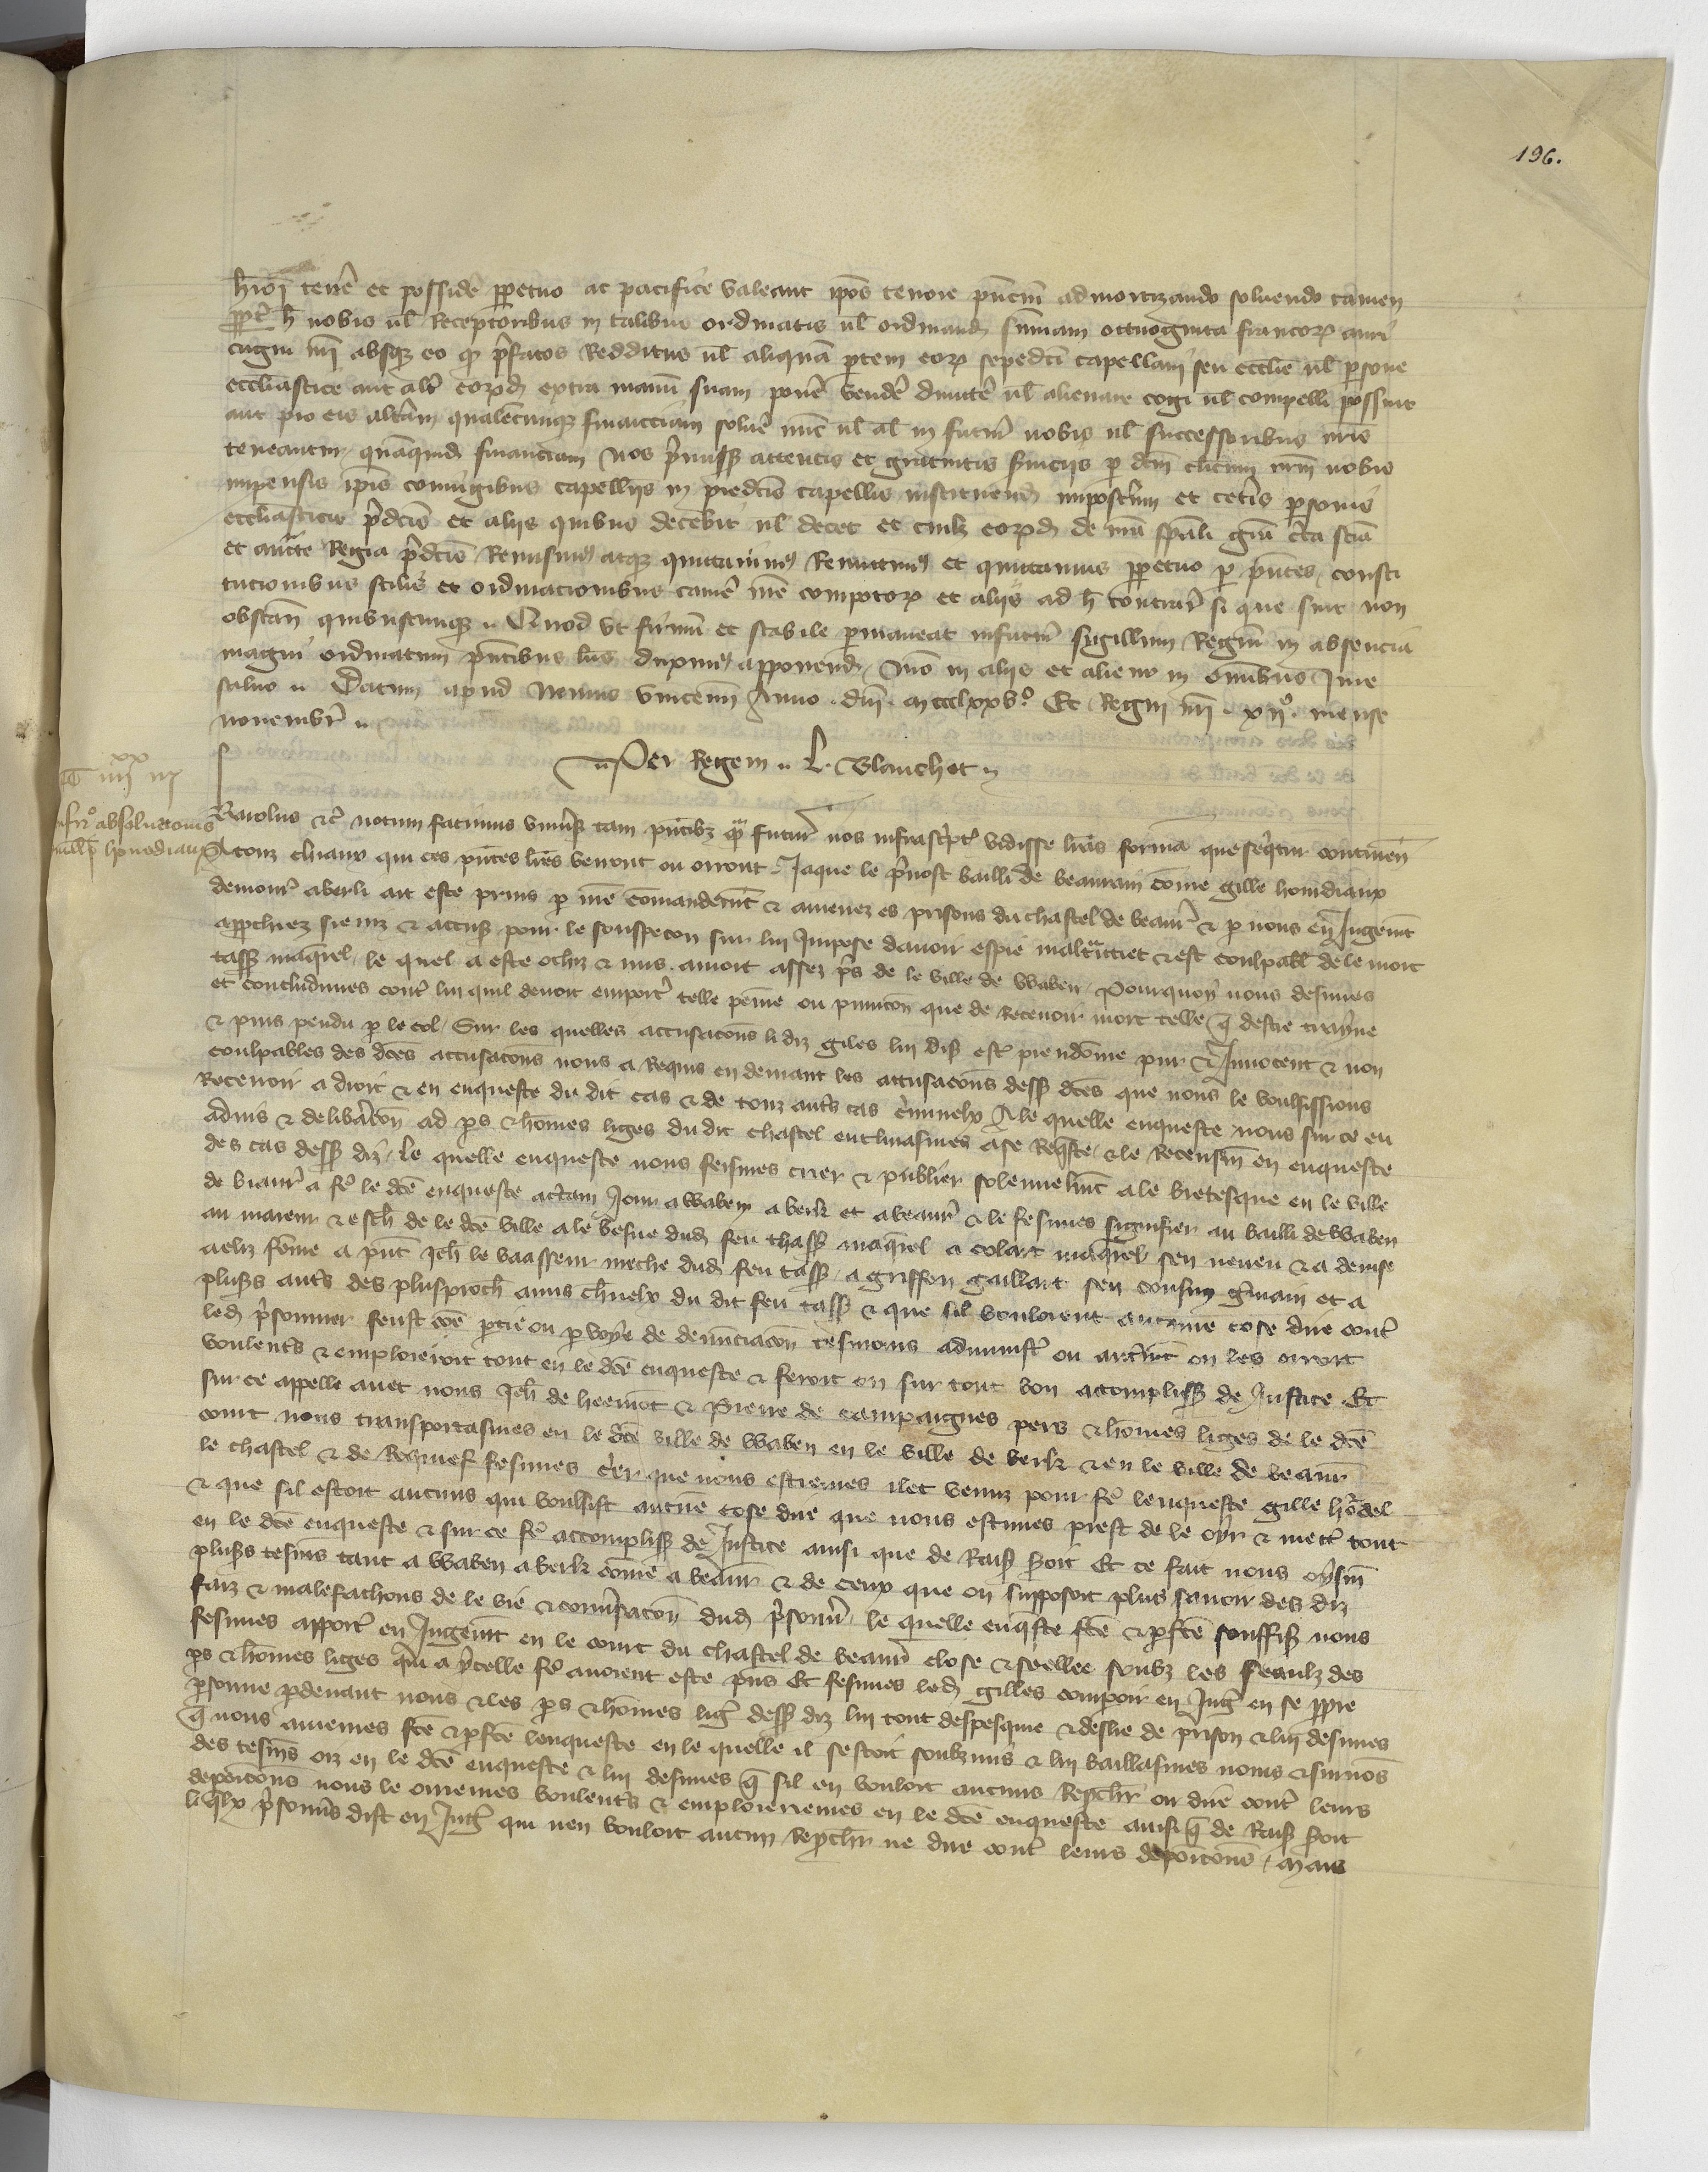 196.
hmoi tenere et possidere perpetuo ac pacifice valeant ipos tenore pntm admortizando solvendo tamen
propter h nobis vl Receptoribus in talibus ordinatis vl ordinand summam octuoginta francorum auri
cugni nri absque eo quod prefatos Redditus vl aliquam partem eorum sepedcti capellani seu ecclie vl persone
ecclesiastice aut alter eorumdem extra manum suam ponere vendere dimittere vl alienare cogi vl compelli possint
aut pro eis alteram qualecunque financiam solvere nunc vl al in futurum nobis vl successoribus nris
teneantur quamquidem financiam Nos premissis attentis et gratuitis serviciis per dictum clicum nrm nobis
impensis ipis coniugibus capellanis in predictis capellis instituend imposterum et ceteris personis
ecclesiasticis predictis et aliis quibus decebit vl decet et cuilibet eorumdem de nra spali gra certa sciencia
et aucte Regia predictis Remisimus atque quitavimus Remittimus et quitamus perpetuo per presentes consti
tucionibus stilis et ordinacionibus camere nre compotorum et aliis ad h contrariis si que sint non
obstan quibuscunque Quod ut firmum et stabile permaneat infuturum sigillum Regium in absencia
magni ordinatum presentibus litteris duximus apponend Nro in aliis et alieno in omnibus Iure
salvo Datum apud Nemus Vincenn Anno dni mccclxxv° Et Regni nri xii° mense
novembris
Per Regem L. Blanchet
iiii xx iii
Karolus etc notum facimus universis tam presentibus quam futuris nos infrascriptas vidisse litteras formam que sequitur continen
absolucionis
A touz chiaux qui ces presentes lettres verront ou orront Jaque le prevost bailli de beaurain comme gille houdiaux
demourant a berk ait este prins par nre commandement et amenez es prisons du chastel de beaurain et par nous en Jugement
approchiez sieuiz et accuse pour le souspecon sur lui Impose davoir espie malettraittiet et est coulpable de le mort
tasse maquerel le quel a este ochiz et mis a mort assez pres de le ville de Waben Pourquoy nous desimes
et concludimes contre lui quil devoit emporter telle peinne ou punicion que de Recevoir mort telle que destre trayne
et puis pendu par le col Sur les quelles accusacions li diz giles lui dist estre preudomme pur et Innocent et non
coulpables des dictes accusacions nous a Requis en deniant les accusacions dessus dictes que nous le voulsissions
Recevoir a droit et en enqueste du dit cas et de touz autres cas criminelx A le quelle enqueste nous sur ce eu
advis et deliberacion ad pers et hommes liges du dit chastel enclinasmes a se Requeste et le Recensmes en enqueste
des cas dessus diz Le quelle enqueste nous feismes crier et publier solennelment a le bretesque en le ville
de biaurain a faire le dicte enqueste a certain Jour a waben a berk et a beaurain et le fesimes signifier au bailli de Waben
au maieur et eschevins de le dicte ville a le vesve dud feu thasse maquerel a colart maquerel sen neveu et a denise
aeliz femme a present Jeh le vaasseur nieche dud feu tasse a griffon gaillart sen cousin germain et a
plusieurs autres des plusproch amis charnelx du dit feu tasse et que sil vouloient aucune cose dire contre
led prisonnier feust comme partie ou par voye de denunciacion tesmoins adminstrer ou autrement on les orroit
voulentiers et emploieroit tout en le dicte enqueste et feroit on sur tout bon accomplissement de Justice Et
sur ce appelle avec nous Jeh de heemont et Pierre de campaignes pers et hommes liges de le dicte
court nous transportasmes en le dicte ville de Waben en le ville de berk et en le ville de beaurain
le chastel et de Rechief fesimes crier que nous estiemes illec venuz pour faire lenqueste gille houdel
et que sil estoit aucuns qui voulsist aucune cose dire que nous estimes prest de le oyr et mettre tout
en le dicte enqueste et sur ce faire accomplissement de Justice ainsi que de Raison seroit Et ce fait nous oysmes
plusieurs tesmoins tant a Waben a berk comme a beaurain et de ceux que on supposoit plus savoir des diz
faiz et malefachons de le vie et conversacion dud prisonnier le quelle enqueste faicte et parfaicte souffis nous
fesimes apporter en Jugement en le court du chastel de beaurain close et seellee soubz les seaulx des
pers et hommes liges qui a ycelle faire avoient este prins Et fesimes led gilles comparoir en Jugement en se propre
personne pardevant nous et les pers et hommes liges dessus diz lui tout despesquie et deslie de prison et lui desimes
que nous aviemes faicte et parfaicte lenqueste en le quelle il sestoit soubzmis et lui baillasmes noms et surnoms
des tesmoins oiz en le dicte enqueste et lui desimes que sil en vouloit aucuns Reprocher ou dire contre leurs
deposicions nous le orriemes voulentiers et emploieriemes en le dicte enqueste ainsi que de Raison seroit
liquelx prisonniers dist en Jugement qui nen vouloit aucun Reprocher ne dire contre leurs deposicions mais